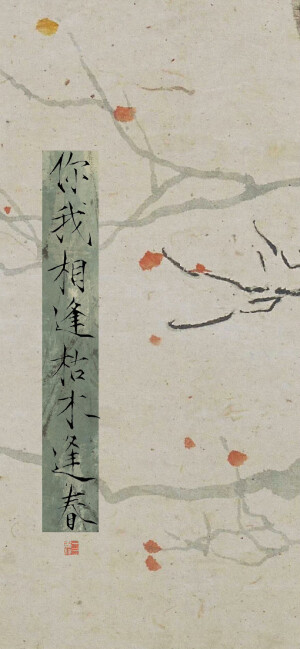 你我相逢枯木逢春